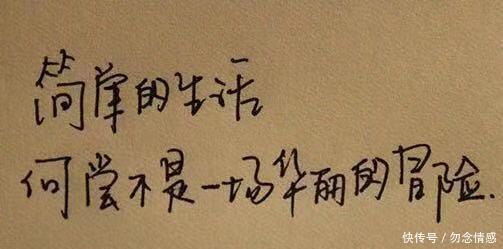 简单的生活
何尝不是一场华丽的冒险.
快传号/勿念情感